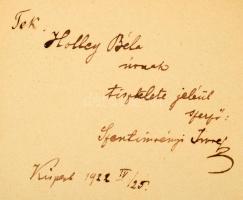 Tek.
Holley Béla
úrnak
tisztelete jeléül
szerző:
Szentimrényi Imre
Kispest 1922 IV/25.